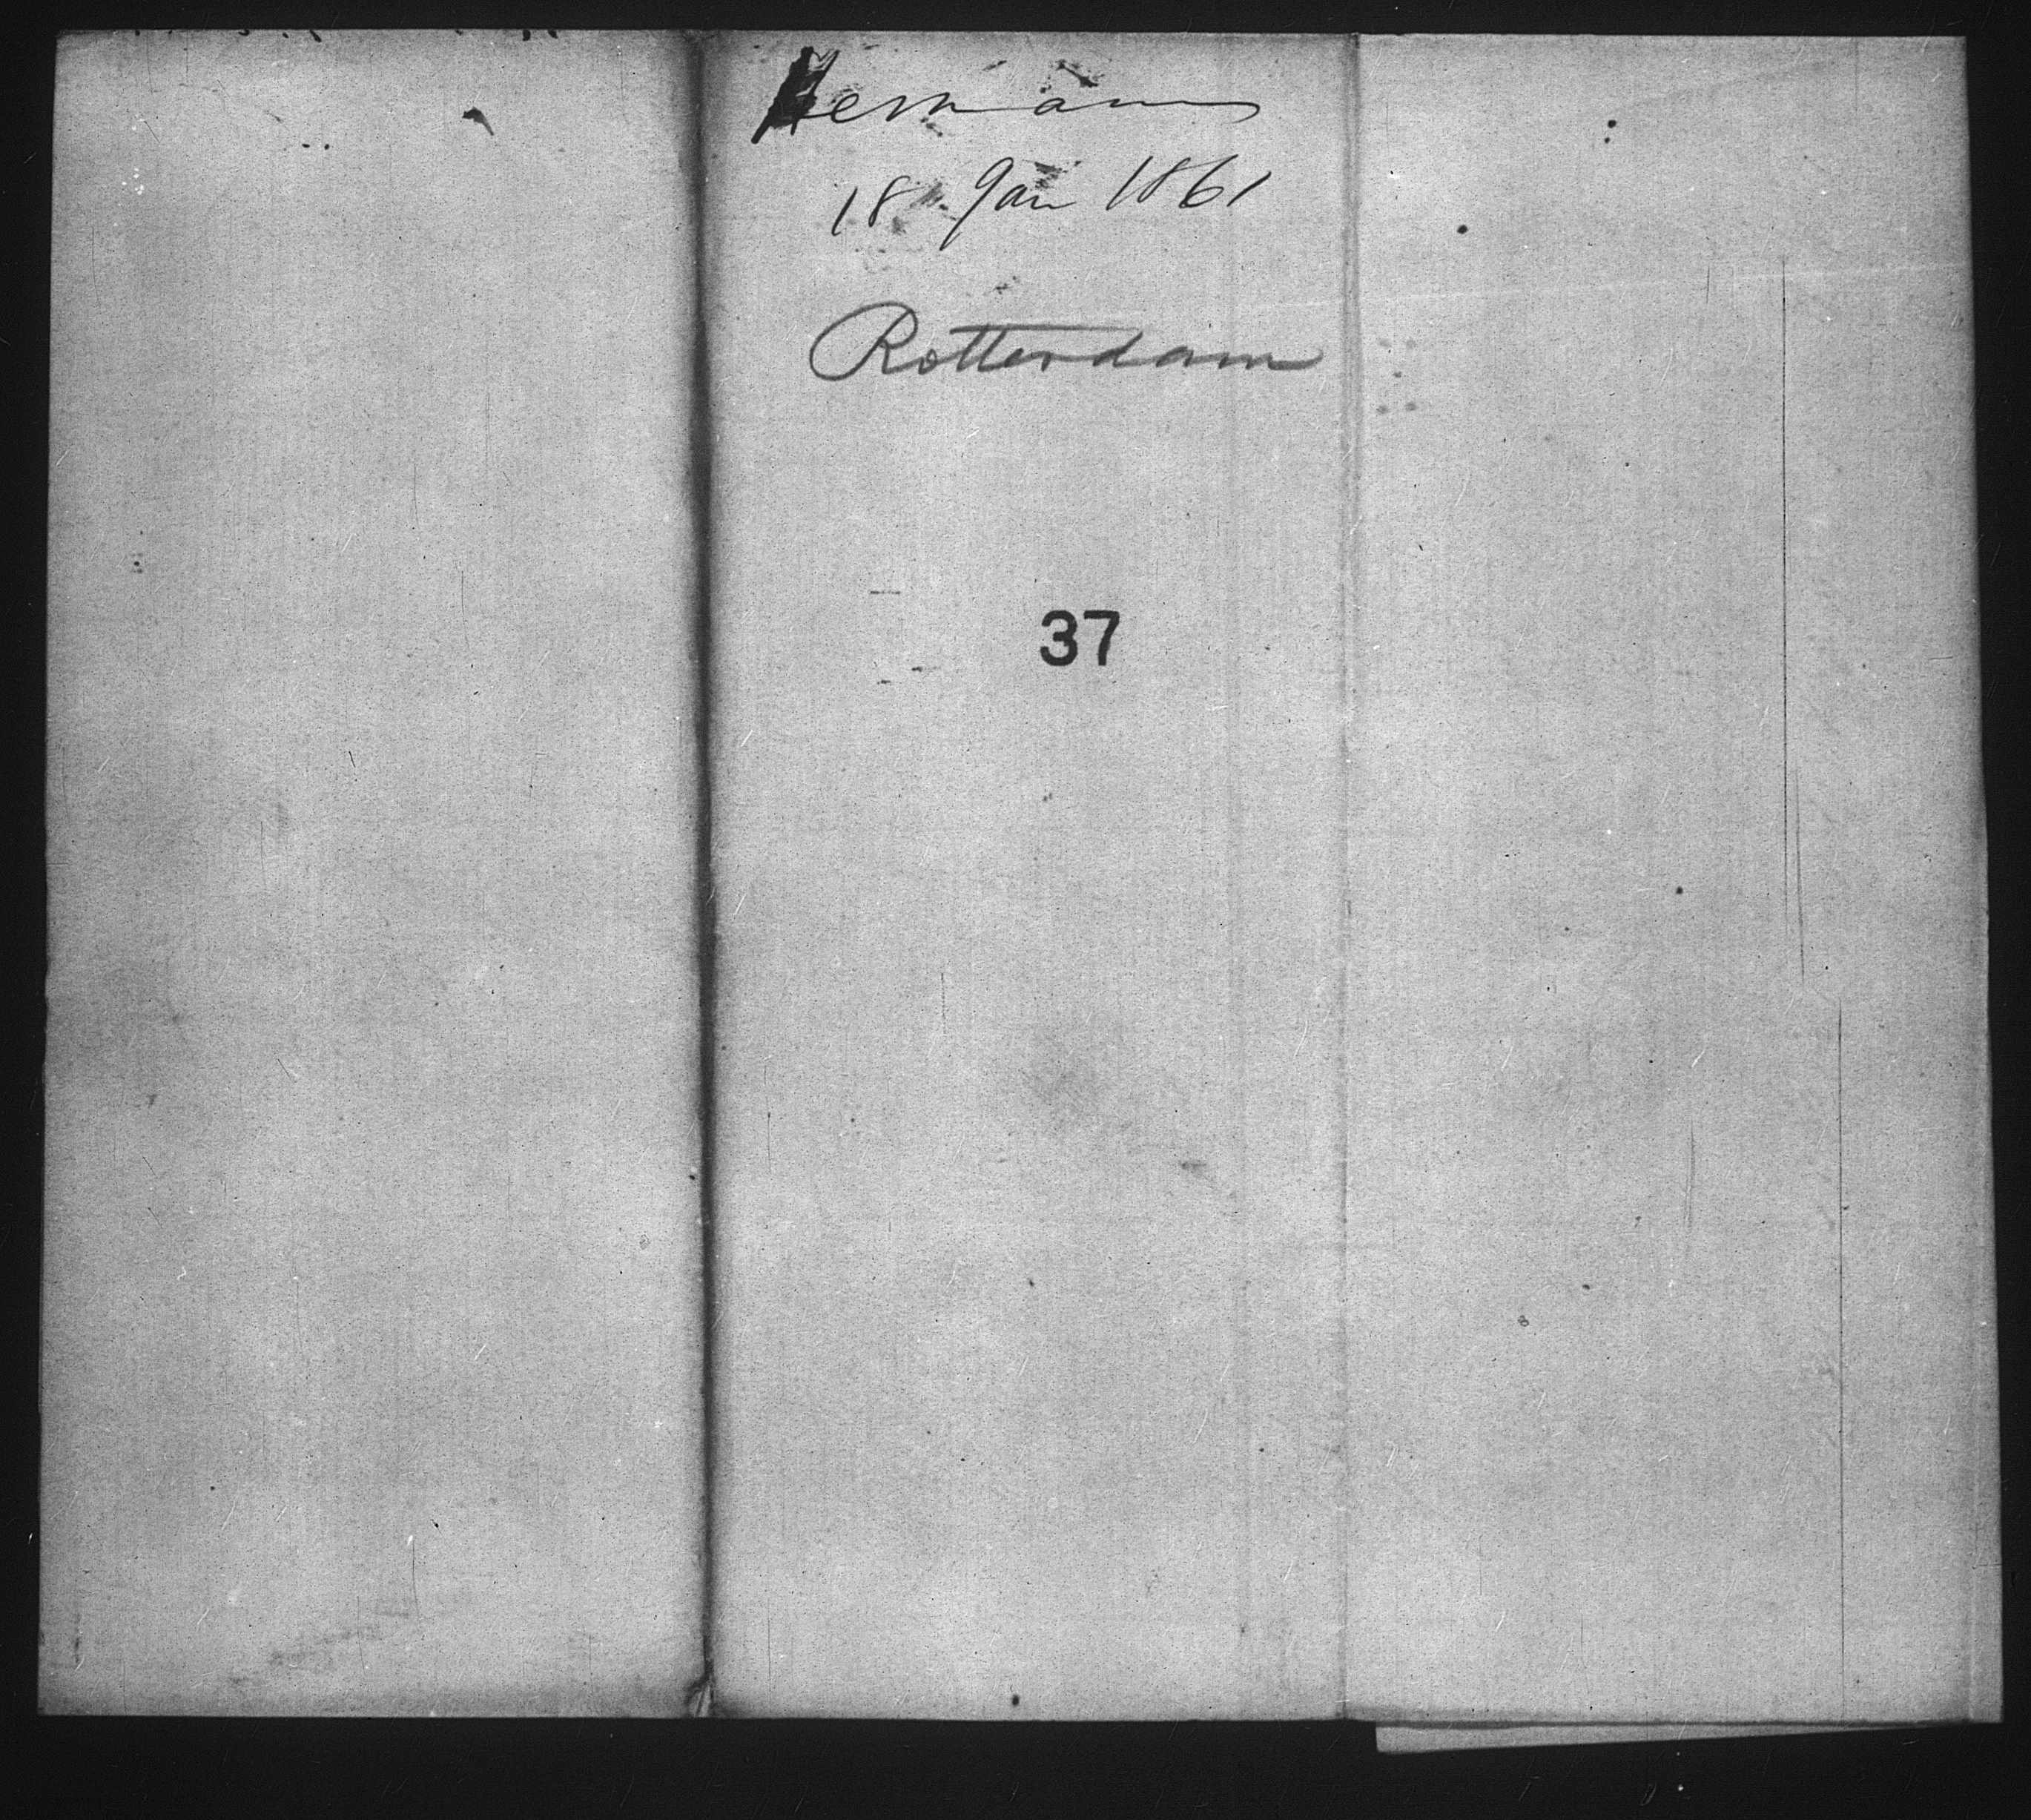 Hermann
18 Jan 1861
Rotterdam
37